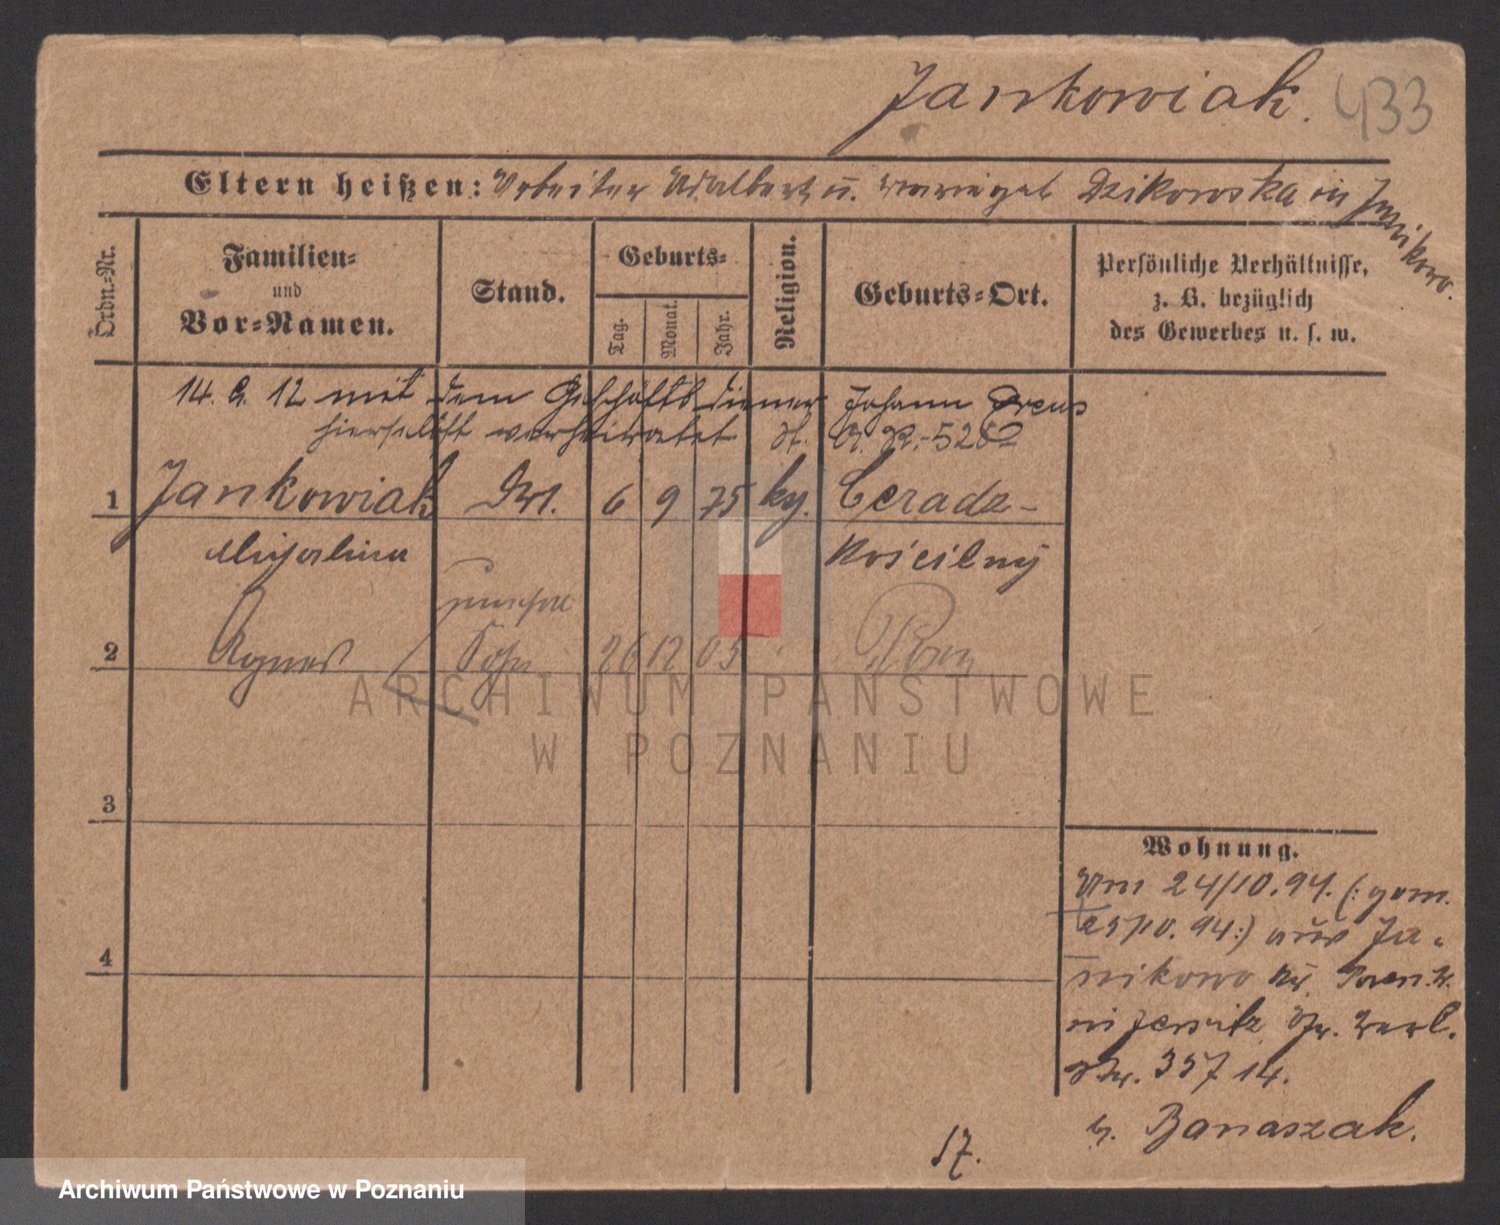 Jankowiak. 433
Eltern heißen: Arbeiter Adalbert u. Dzikowska in Janikowo.
Ordn.-Nr.
Familien-
und
Vor-Namen.
Stand.
Geburts-
Tag.
Monat.
Jahr.
Religion.
Geburts-Ort.
Persönliche Verhältnisse,
z. B. bezüglich
des Gewerbes u. s. w.
14. 9. 12 mit dem Geschäftsdiener Johann
hierselbst verheiratet st. A. R. 526
1 Jankowiak 6 9 75 Ceradz-
Michalina Kościelny
2 Agnes 26 12 05
3
4
Wohnung.
Am 24/10.94. (: gem.
25/10. 94:) aus Ja-
nikowo Kr. Posen W.
in Jersitz
Nr. 357 14.
b. Banaszak.
17.
ARCHIWUM PAŃSTWOWE
W POZNANIU
Archiwum Państwowe w Poznaniu